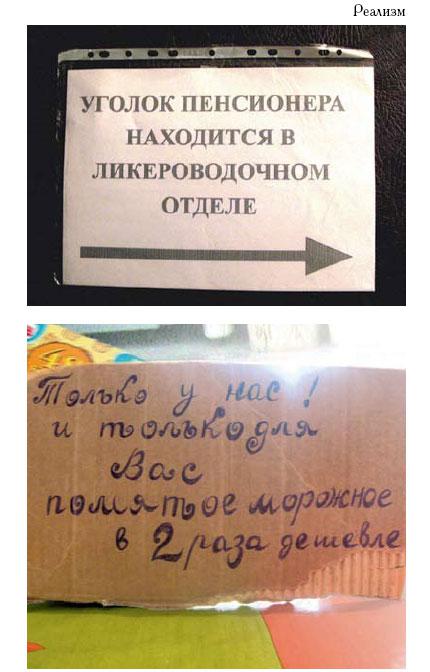 Реализм
УГОЛОК ПЕНСИОНЕРА
НАХОДИТСЯ В
ЛИКЕРОВОДОЧНОМ
ОТДЕЛЕ
Только у нас !
и только для
Вас
помятое морожное
в 2 раза дешевле